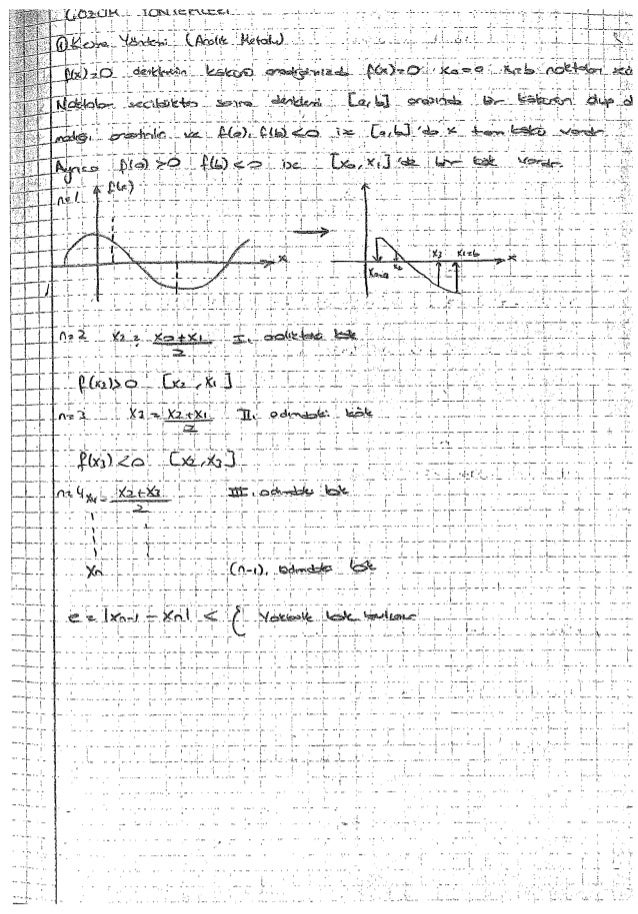 ÇÖZÜM YÖNTEMLERİ
① Kesme Yöntemi (Aralık Metodu)
f(x)=0 denklemin kökünü aradığımızda f(x)=0 x₀=a x₁=b noktaları
Noktalar seçildikten sonra denklemi [a,b] arasında bir kökünün olup
f(a).f(b)<0 ise [a,b]'da x tam kökü vardır
Ayrıca f(a)>0 f(b)<0 ise [x₀,x₁]'de bir kök vardır.
n=1 f(x)
x x₀=a x₂ x₃ x₁=b x
n=2 x₂ = x₀+x₁ / 2 I. aralıktaki kök
f(x₂)>0 [x₂, x₁]
n=3 x₃ = x₂+x₁ / 2 II. adımdaki kök
f(x₃)<0 [x₂,x₃]
n=4 x₄ = x₂+x₃ / 2 III. adımdaki kök
xn (n-1). adımdaki kök
e = |xn-1 - xn| < { Yaklaşık kök bulunur